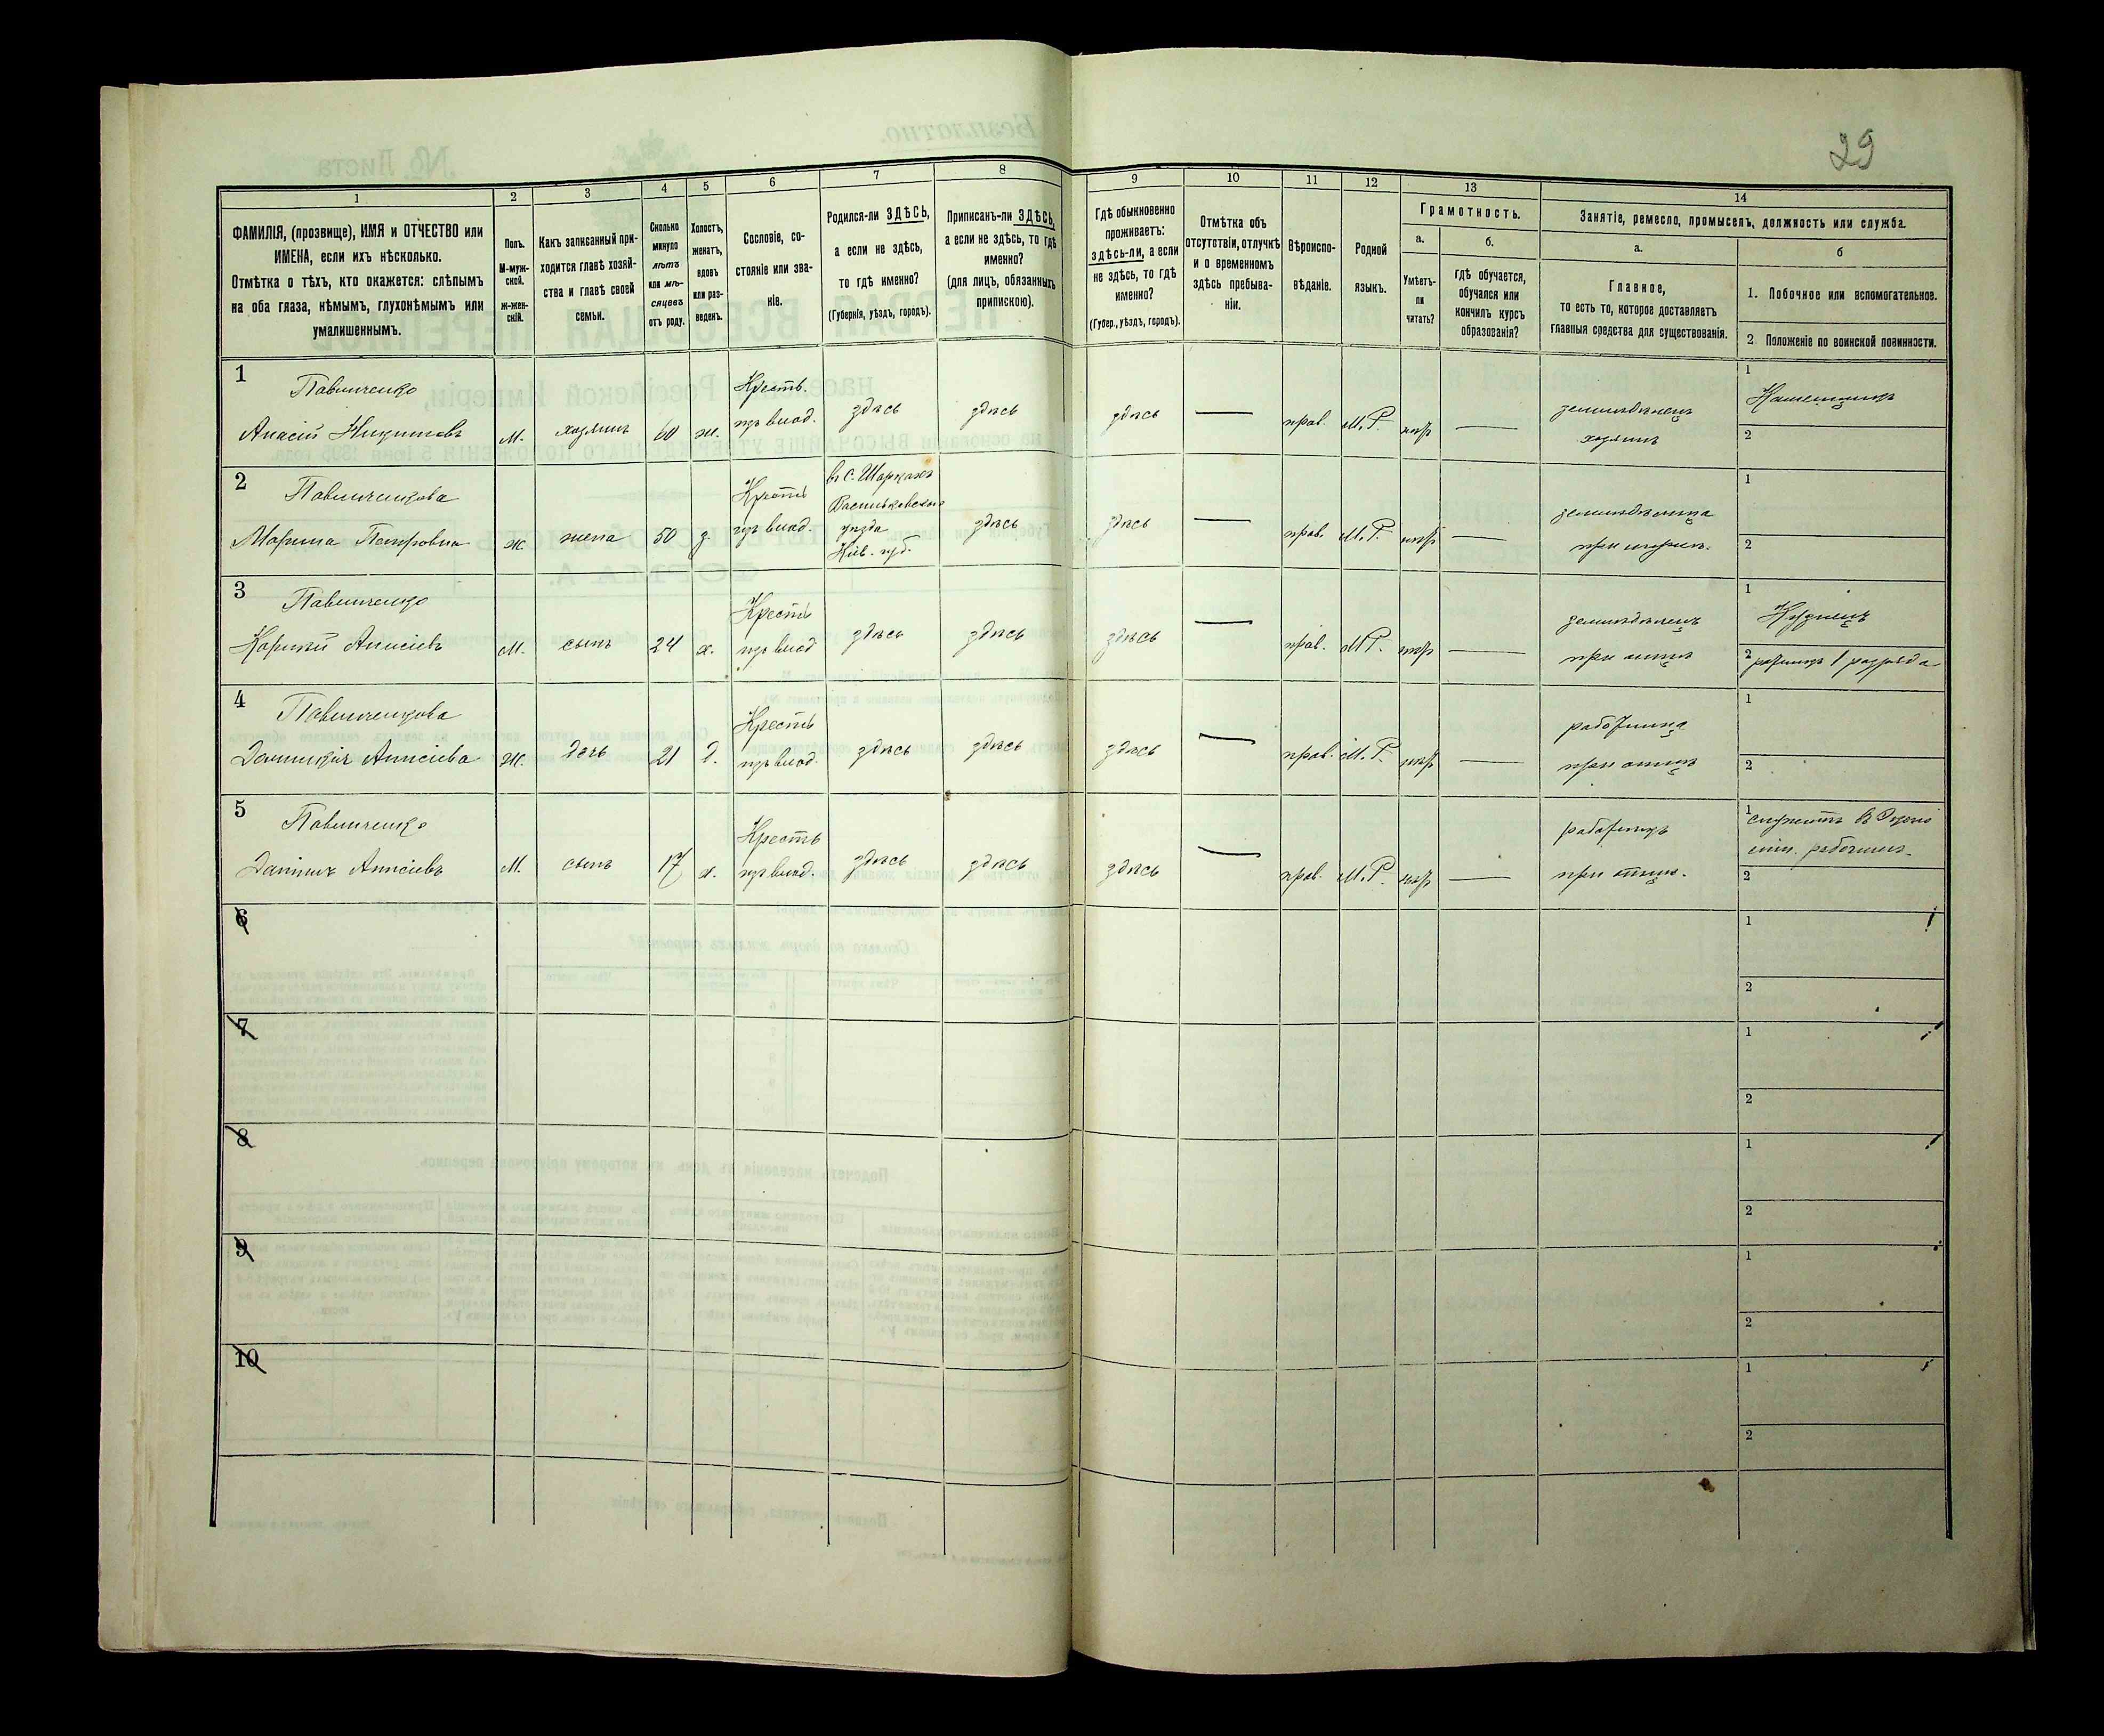 29
1 2 3 4 5 6 7 8 9 10 11 12 13 14
ФАМИЛІЯ, (прозвище), ИМЯ и ОТЧЕСТВО или
ИМЕНА, если ихъ нѣсколько.
Отмѣтка о тѣхъ, кто окажется: слѣпымъ
на оба глаза, нѣмымъ, глухонѣмымъ или
умалишеннымъ.
Полъ.
М-муж-
ской.
Ж-жен-
скій.
Какъ записанный при-
ходится главѣ хозяй-
ства и главѣ своей
семьи.
Сколько
минуло
лѣтъ
или мѣ-
сяцевъ
отъ роду.
Холостъ,
женатъ,
вдовъ
или раз-
веденъ.
Сословіе, со-
стояніе или зва-
ніе.
Родился-ли ЗДѢСЬ,
а если не здѣсь,
то гдѣ именно?
(Губернія, уѣздъ, городъ).
Приписанъ-ли ЗДѢСЬ,
а если не здѣсь, то гдѣ
именно?
(для лицъ, обязанныхъ
припискою).
Гдѣ обыкновенно
проживаетъ:
здѣсь-ли, а если
не здѣсь, то гдѣ
именно?
(Губер., уѣздъ, городъ).
Отмѣтка объ
отсутствіи, отлучкѣ
и о временномъ
здѣсь пребыва-
ніи.
Вѣроиспо-
вѣданіе.
Родной
языкъ.
Грамотность.
а.
Умѣетъ-
ли
читать?
б.
Гдѣ обучается,
обучался или
кончилъ курсъ
образованія?
Занятіе, ремесло, промыселъ, должность или служба.
а.
Главное,
то есть то, которое доставляетъ
главныя средства для существованія.
б
1. Побочное или вспомогательное.
2 Положеніе по воинской повинности.
1
Павличенко
Крестъ.
1
М. хозяинъ 60 ж. изъ влад. здѣсь здѣсь здѣсь — прав. М.Р. — земледѣлецъ
хозяинъ
2
2
Павличенкова
Крестъ
1
Марина Петровна ж. жена 50 з. изъ влад.
уѣзда
Кіев. губ.
здѣсь здѣсь — прав. М.Р. —
2
3
Павличенко
Крестъ
1
Кузнецъ
М. сынъ 24 х. изъ влад здѣсь здѣсь здѣсь — прав. М.Р. — земледѣлецъ
при отцѣ
2 ратникъ 1 разряда
4
Павличенкова
Крестъ
1
ж. дочь 21 д. изъ влад. здѣсь здѣсь здѣсь — прав. М.Р. — работница
при отцѣ
2
5
Павличенко
Крестъ
1
Даніилъ Анисіевъ М. сынъ 17 х. изъ влад. здѣсь здѣсь здѣсь — прав. М.Р. — работникъ
при отцѣ.
2
6
1
2
7
1
2
8
1
2
9
1
2
10
1
2